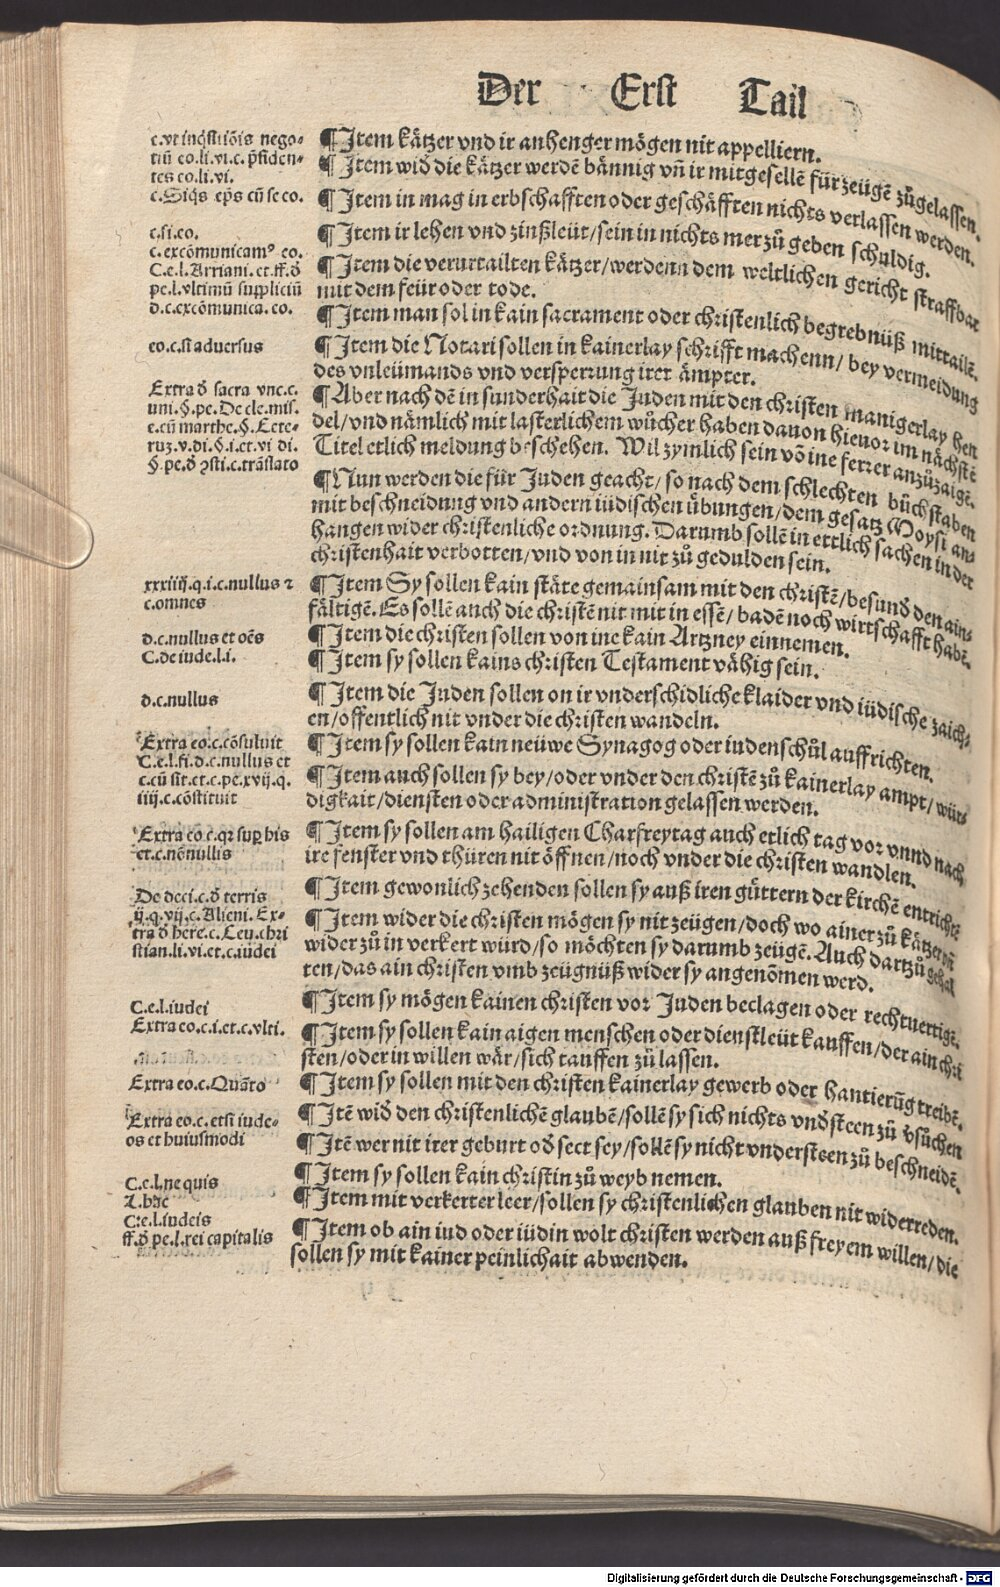 Der Erst Tail
c.vt inq̃sitiõis nego⸗
tiũ eo.li.vi.c.p̃siden⸗
tes eo.li.vi.
c.Siq̃s ep̃s cũ se co.
c.si.eo.
c.excõmunicamꝰ eo.
C.e.l.Arriani.et.ff.ď
pe.l.vltimũ suppliciũ
d.c.excõmunica.eo.
eo.c.si aduersus
Extra ď sacra vnc.c.
uni.§.pe.De cle.mis.
e.cũ marthe.§.Cete⸗
ruz.v.di.§.i.et.vi di.
§.pe.ď ꝯsti.c.trãslato
xxiiij.q.i.c.nullus ⁊
c.omnes
d.c.nullus et oẽs
C.de iude.l.i.
d.c.nullus
Extra eo.c.cõsuluit
C.e.l.fi.d.c.nullus et
c.cũ sit.et.c.pe.xvij.q.
iiij.c.cõstituit
Extra eo.c.qꝛ sup his
et.c.nõnullis
De deci.c.ď terris
ij.q.vij.c.Alieni.Ex⸗
tra ď here.c.Leu.chri
stian.li.vi.et.c.iudei
C.e.l.iudei
Extra eo.c.i.et.c.vlti.
Extra eo.c.Quãto
Extra eo.c.etsi iude⸗
os et huiusmodi
C.e.l.ne quis
L.hac
C.e.l.iudeis
ff.ď pe.l.rei capitalis
¶Item kätzer vnd ir anhenger mögen nit appelliern.
¶Item wiď die kätzer werdẽ bännig vñ ir mitgesellẽ für zeügẽ zůgelassen.
¶Item in mag in erbschafften oder geschäfften nichts verlassen werden.
¶Item ir lehen vnd zinßleüt/sein in nichts mer zů geben schuldig.
¶Item die verurtailten kätzer/werdenn dem weltlichen gericht straffbar
mit dem feür oder tode.
¶Item man sol in kain sacrament oder christenlich begrebnüß mittailẽ.
¶Item die Notari sollen in kainerlay schrifft machenn/bey vermeidung
des vnleümands vnd versperrung irer ämpter.
¶Aber nach dẽ in sunderhait die Juden mit den christen manigerlay hen
del/vnd nämlich mit lasterlichem wůcher haben dauon hieuor im nächstẽ
Titel etlich meldung beschehen. Wil zymlich sein võ ine ferrer anzůzaigẽ.
¶Nun werden die für Juden geacht/so nach dem schlechten bůchstaben
mit beschneidung vnd andern iüdischen übungen/dem gesatz Moysi an⸗
hangen wider christenliche ordnung. Darumb sollẽ in ettlich sachen in der
christenhait verbotten/vnd von in nit zů gedulden sein.
¶Item Sy sollen kain stäte gemainsam mit den christẽ/besunď den ain⸗
fältigẽ. Es sollẽ auch die christẽ nit mit in essẽ/badẽ noch wirtschafft habẽ.
¶Item die christen sollen von ine kain Artzney einnemen.
¶Item sy sollen kains christen Testament vähig sein.
¶Item die Juden sollen on ir vnderschidliche klaider vnd iüdische zaich⸗
en/offentlich nit vnder die christen wandeln.
¶Item sy sollen kain neüwe Synagog oder iudenschůl auffrichten.
¶Item auch sollen sy bey/oder vnder den christẽ zů kainerlay ampt/wür⸗
digkait/diensten oder administration gelassen werden.
¶Item sy sollen am hailigen Charfreytag auch etlich tag vor vnnd nach
ire fenster vnd thüren nit öffnen/noch vnder die christen wandlen.
¶Item gewonlich zehenden sollen sy auß iren gůttern der kirchẽ entrichtẽ
¶Item wider die christen mögen sy nit zeügen/doch wo ainer zů kätzer vñ
wider zů in verkert würd/so möchten sy darumb zeügẽ. Auch dartzů gehal
ten/das ain christen vmb zeügnüß wider sy angenõmen werd.
¶Item sy mögen kainen christen vor Juden beclagen oder rechtuertigẽ.
¶Item sy sollen kain aigen menschen oder dienstleüt kauffen/der ain chri
sten/oder in willen wär/sich tauffen zů lassen.
¶Item sy sollen mit den christen kainerlay gewerb oder hantierũg treibẽ.
¶Itẽ wiď den christenlichẽ glaubẽ/sollẽ sy sich nichts vnďsteen zů ꝟsůchen
¶Itẽ wer nit irer geburt oď sect sey/sollẽ sy nicht vndersteen zů beschneidẽ.
¶Item sy sollen kain christin zů weyb nemen.
¶Item mit verkerter leer/sollen sy christenlichen glauben nit widerreden.
¶Item ob ain iud oder iüdin wolt christen werden auß freyem willen/die
sollen sy mit kainer peinlichait abwenden.
Digitalisierung gefördert durch die Deutsche Forschungsgemeinschaft - DFG